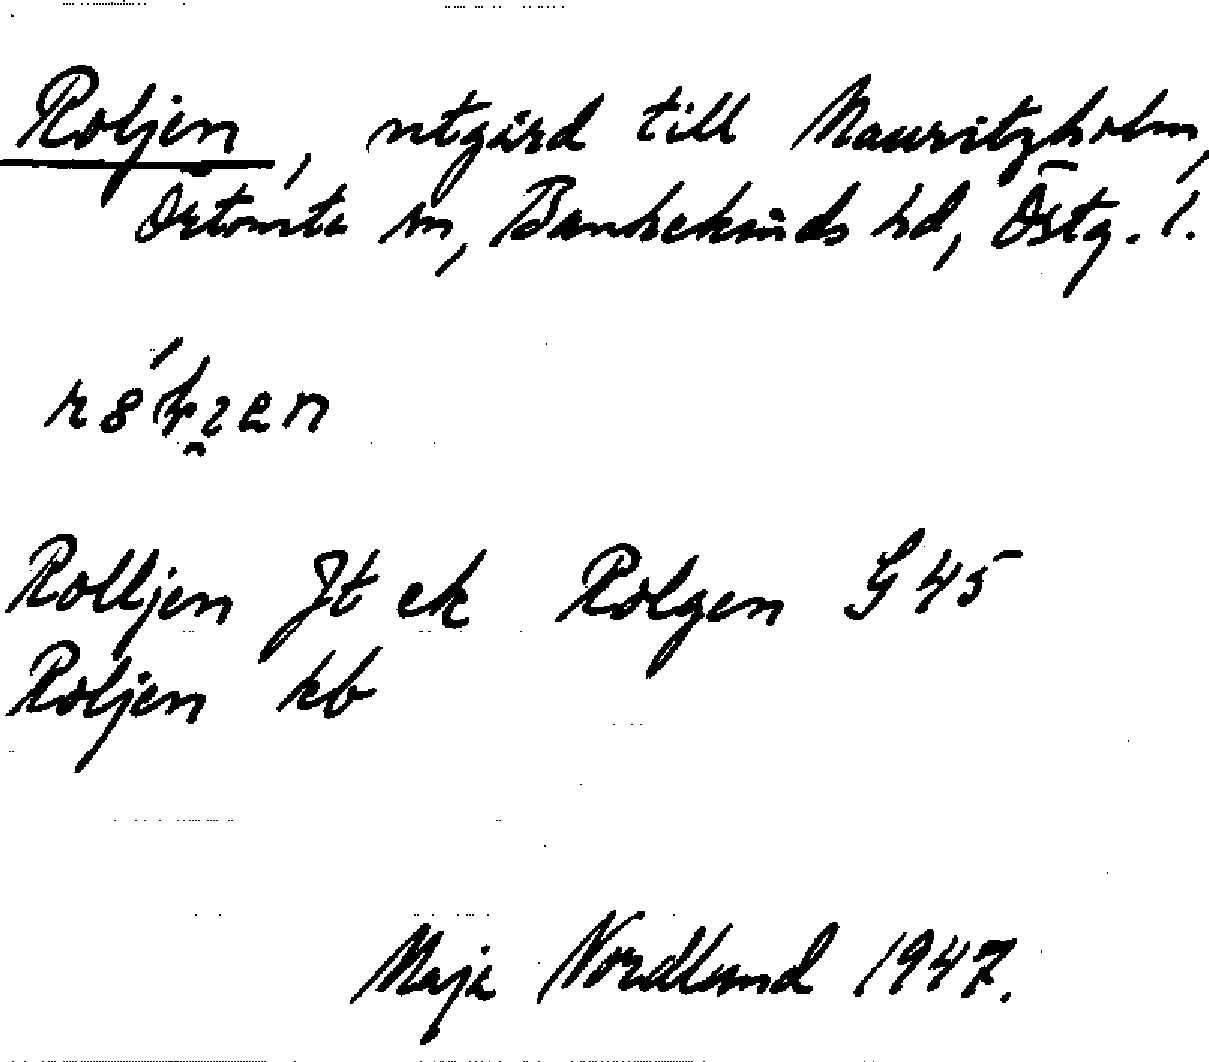 Roljen, utgård till Mauritzholm,
Örtomta sn, Bankekinds hd, Östg. l.
Rolljen Jt ek Rolgen G 45
Roljen kb
Maja Nordlund 1947.